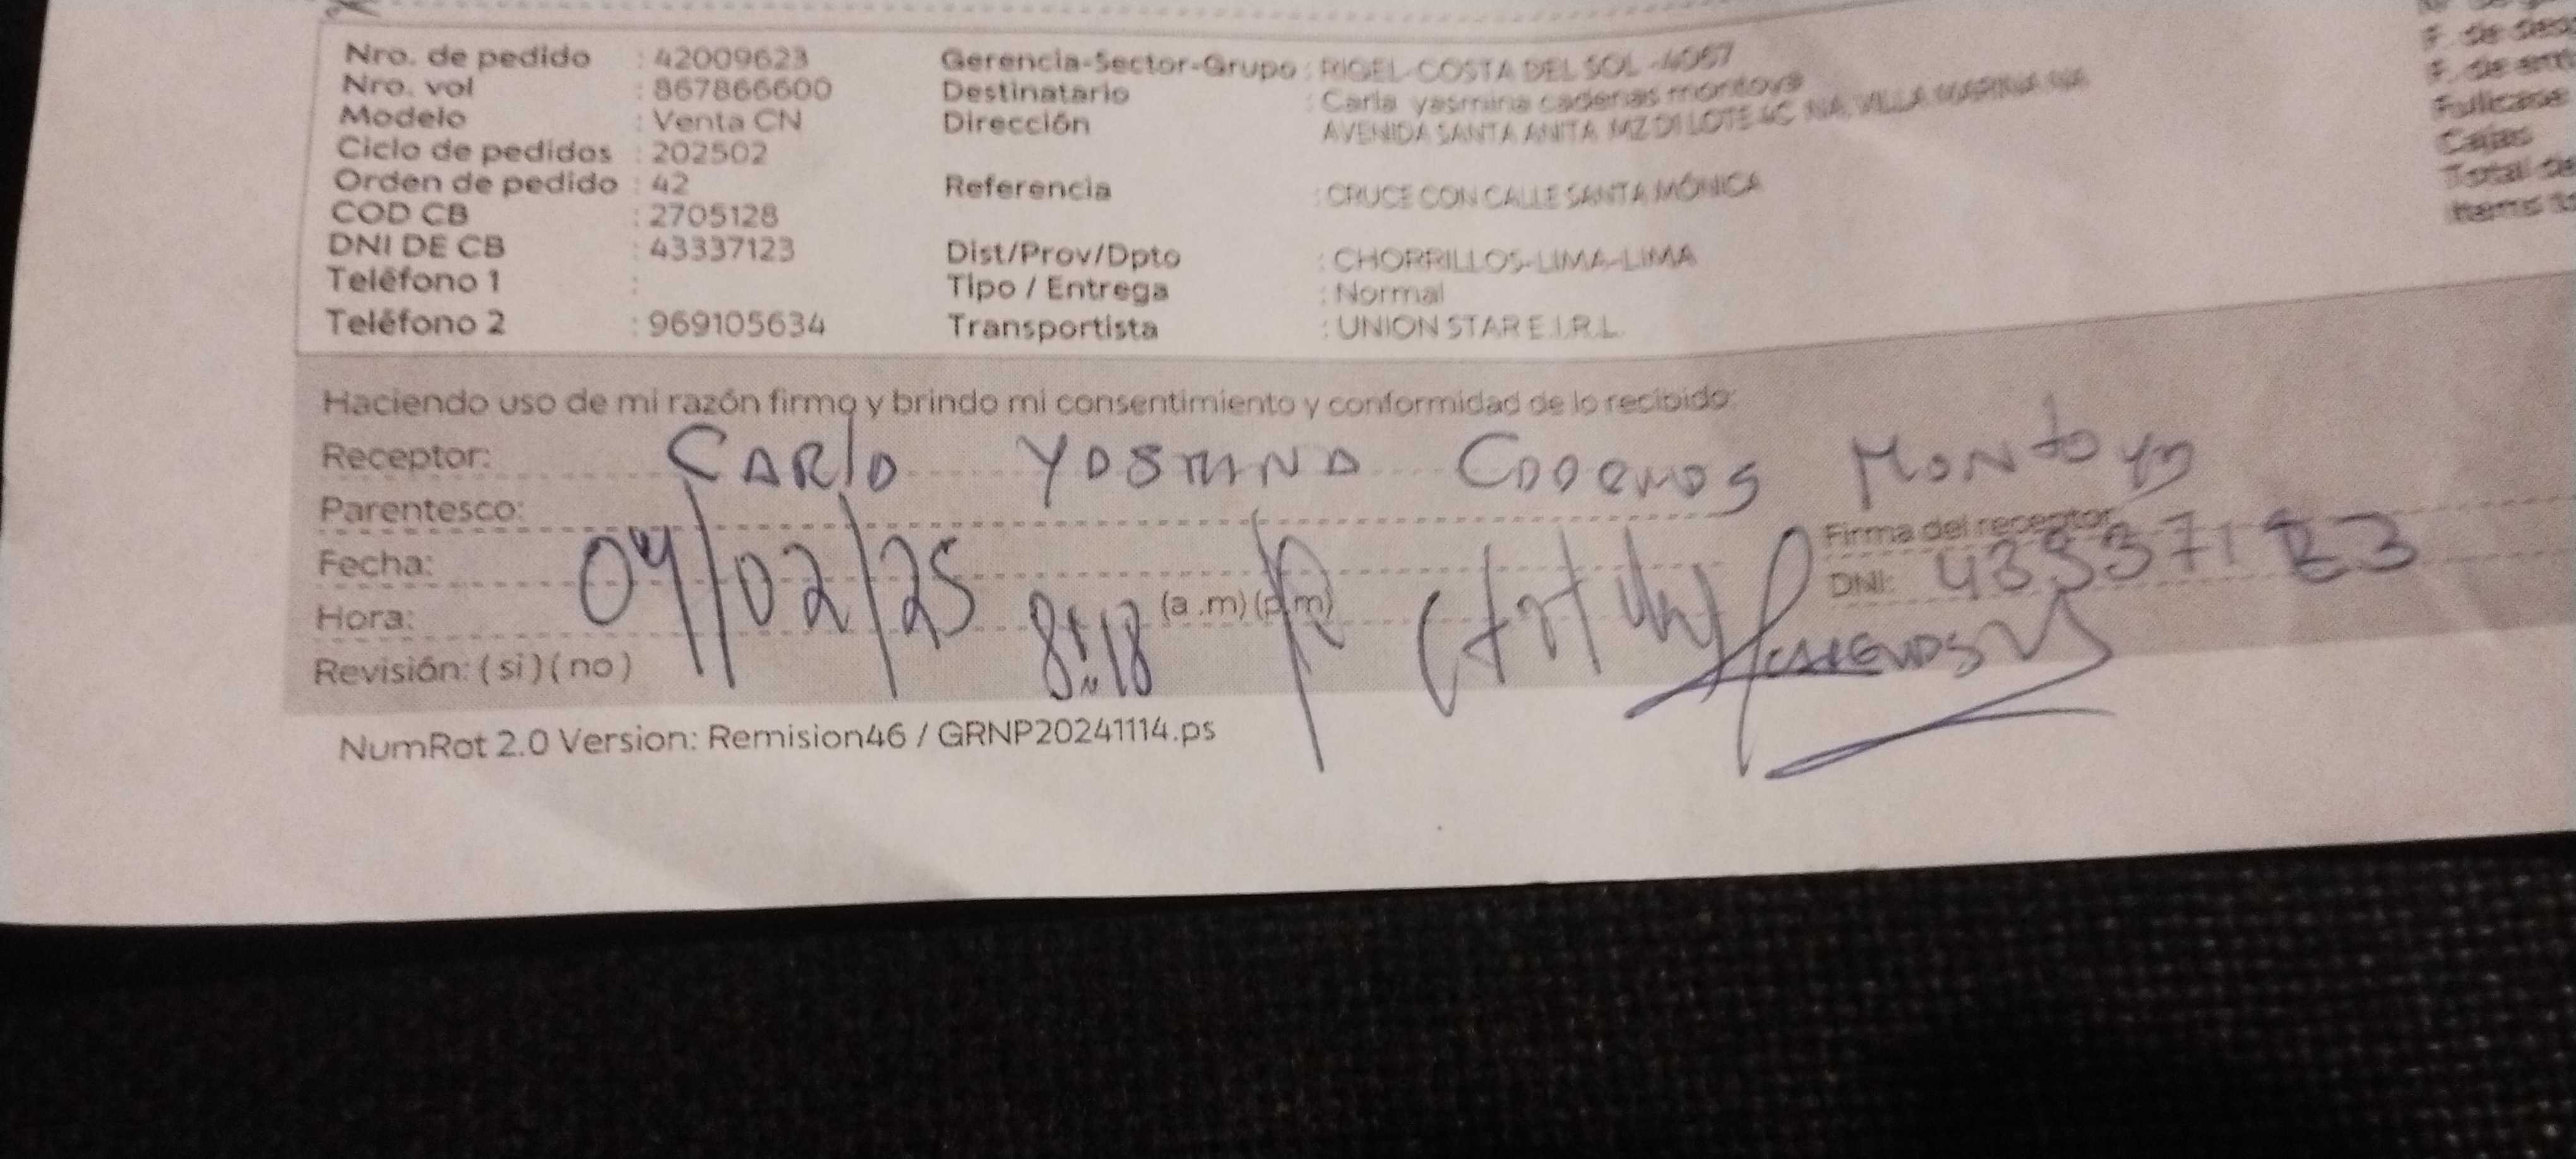 Nro. de pedido : 42009623
Nro. vol : 867866600
Modelo : Venta CN
Ciclo de pedidos : 202502
Orden de pedido : 42
COD CB : 2705128
DNI DE CB : 43337123
Teléfono 1 :
Teléfono 2 : 969105634
Gerencia-Sector-Grupo : RIGEL-COSTA DEL SOL -4067
Destinatario : Carla yasmina cadenas montoya
Dirección AVENIDA SANTA ANITA MZ DI LOTE 4C NA, VILLA MARINA NA
Referencia : CRUCE CON CALLE SANTA MÓNICA
Dist/Prov/Dpto : CHORRILLOS-LIMA-LIMA
Tipo / Entrega : Normal
Transportista : UNION STAR E.I.R.L.
F. de
F. de
Fullcase
Cajas
Total de
Items
Haciendo uso de mi razón firmo y brindo mi consentimiento y conformidad de lo recibido:
Receptor: Carla Yasmina Cadenas Montoya
Parentesco:
Firma del receptor
Fecha: 04/02/25
DNI: 43337123
Hora: 8:18 (a .m) (p.m)
Revisión: ( si ) ( no )
NumRot 2.0 Version: Remision46 / GRNP20241114.ps